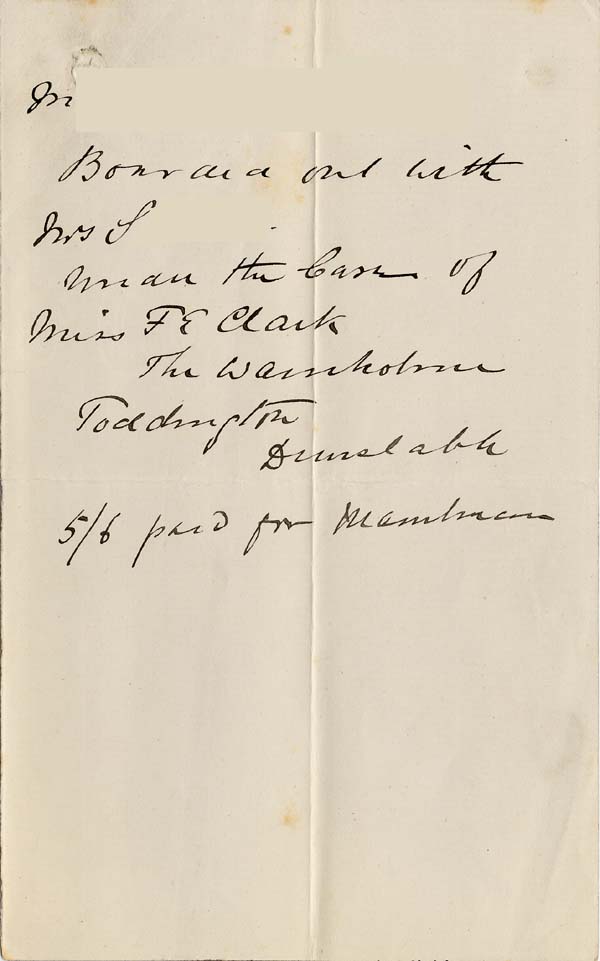 M
Boarded out with
Mrs S
under the Care of
Miss F E Clark
The
Toddington
Dunstable
5/6 paid for